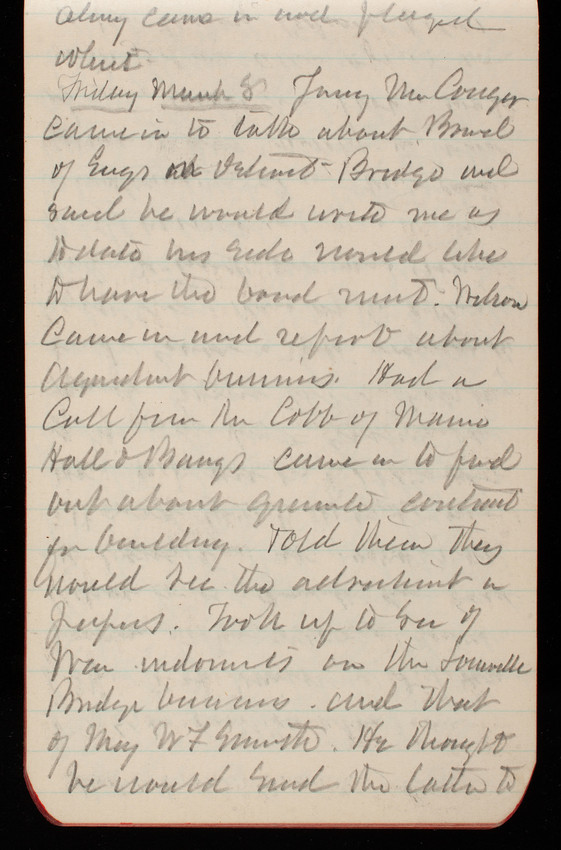 came in and played
whist
Friday March 8 Jany Mr Conger
came in to talk about Board
of Engs Detroit Bridge and
said he would write me as
to date his side would like
to have the board meet. Wilson
came in and report about
business. Had a
Call from Mr Cobb of Maine
Hall & Bangs came in to find
out about granite contract
for building. Told them they
would see the advertisement in
papers. Took up to Sec of
War indorsements on the Louisville
Bridge business and that
of Maj W F Smith. He thought
he would send the latter to